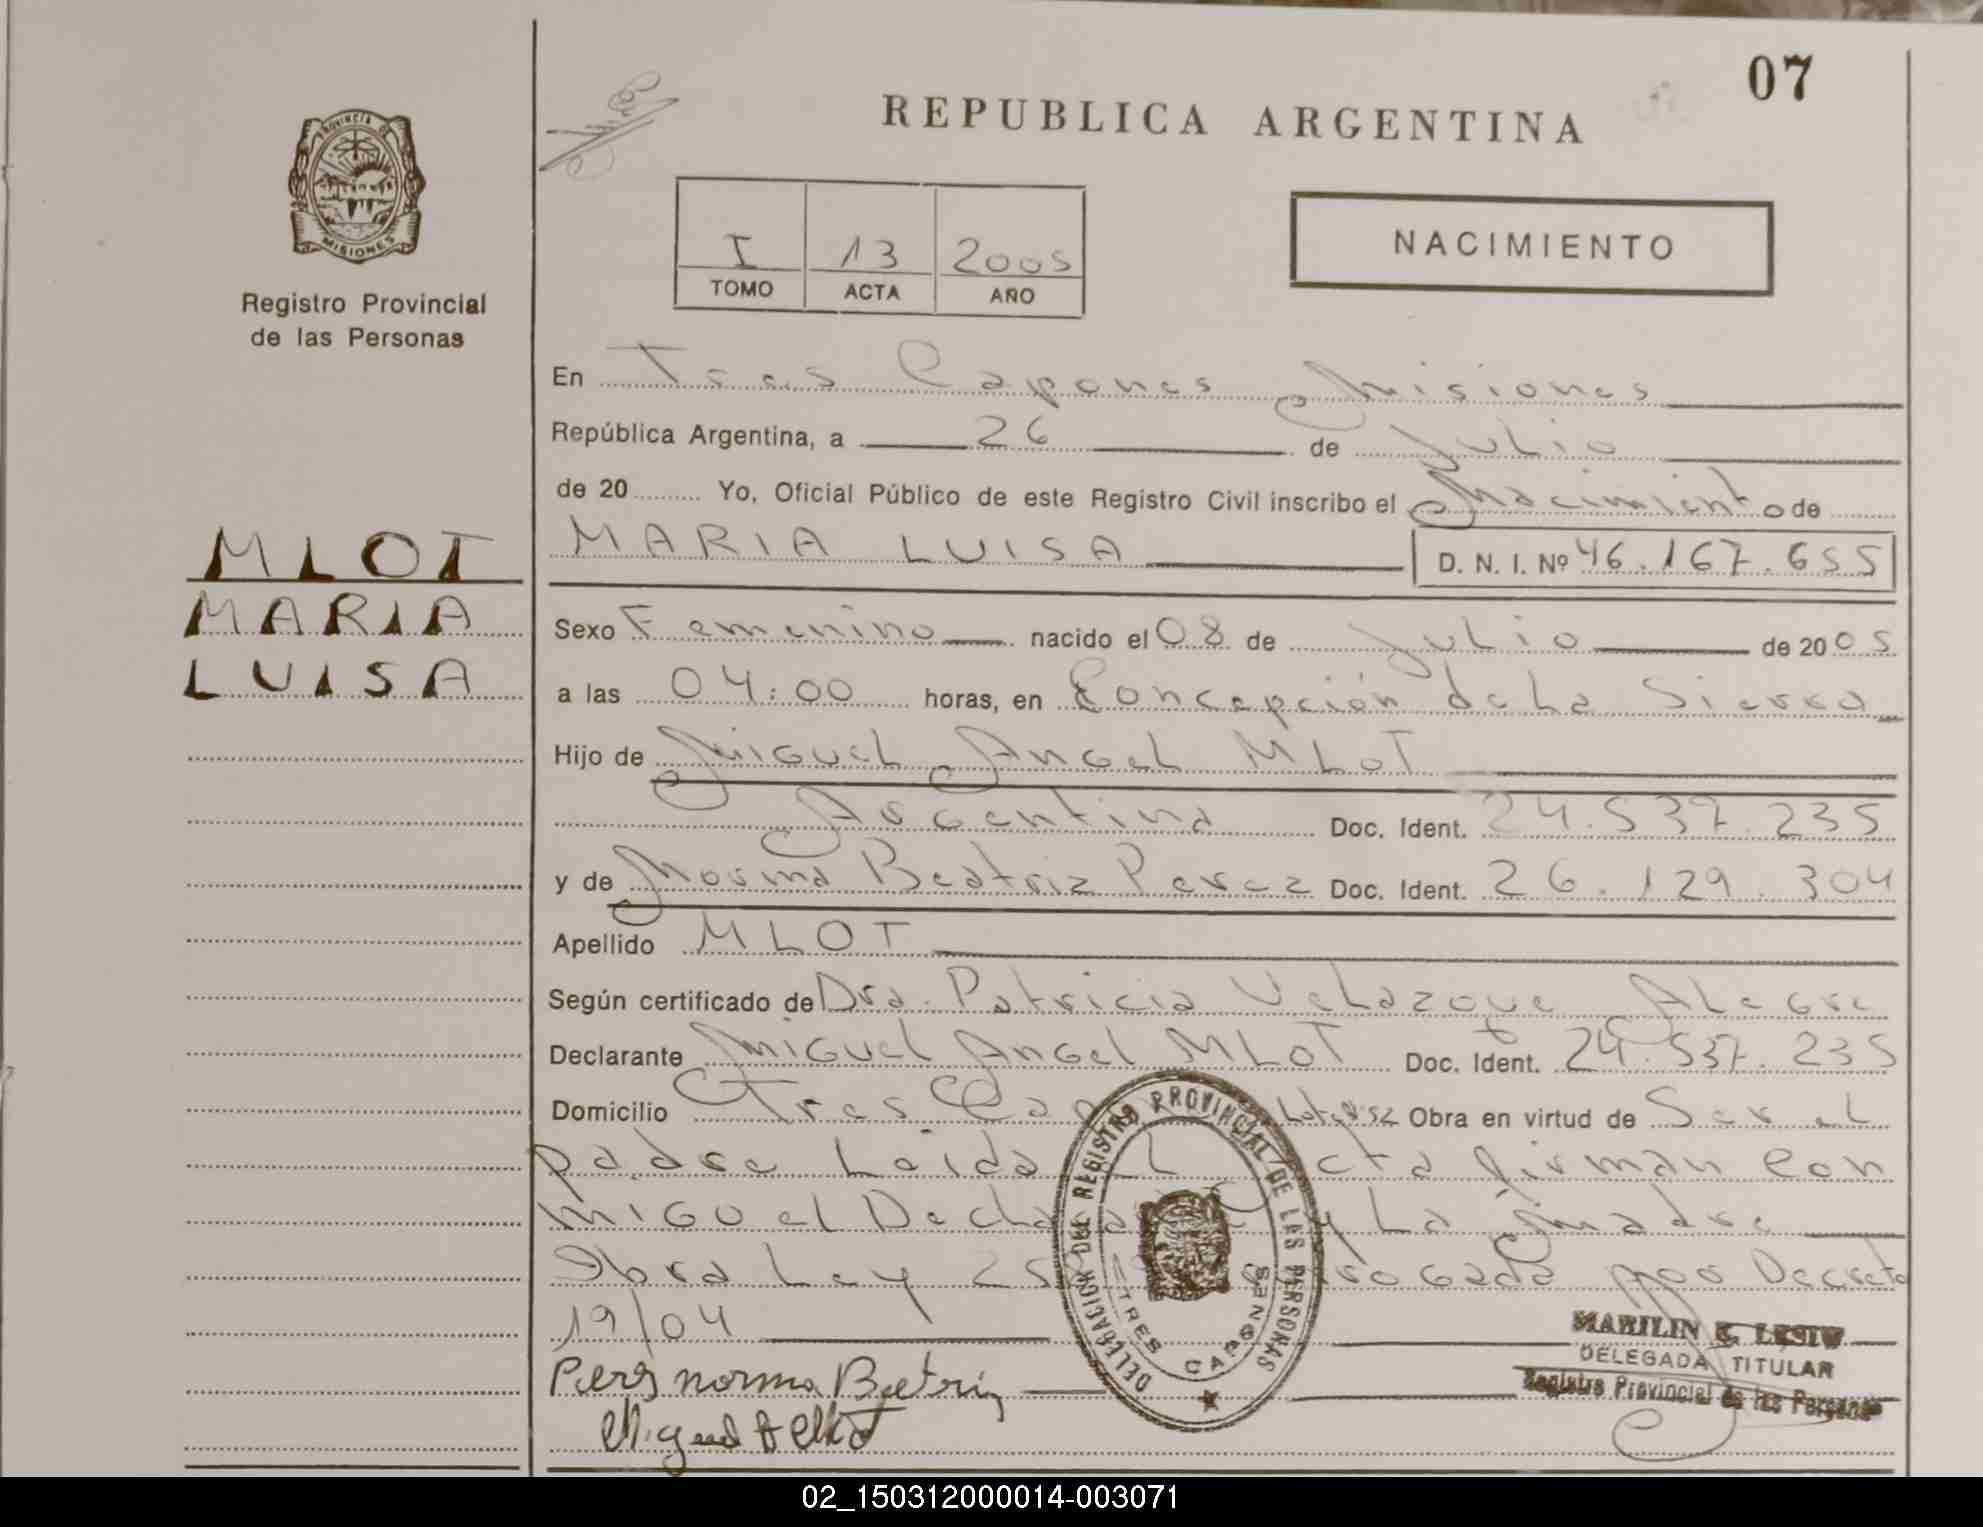 07
REPUBLICA ARGENTINA
PROVINCIA DE
MISIONES
Registro Provincial
de las Personas
I 13 2005
TOMO ACTA AÑO
NACIMIENTO
En Tres Capones Misiones
República Argentina, a 26 de Julio
de 20 Yo, Oficial Público de este Registro Civil inscribo el Nacimiento de
MLOT
MARIA
LUISA
MARIA LUISA D. N. I. Nº 46.167.655
Sexo Femenino nacido el 08 de Julio de 2005
a las 04:00 horas, en Concepción de La Sierra
Hijo de Miguel Angel MLOT
Argentina Doc. Ident. 24.537.235
y de Norma Beatriz Perez Doc. Ident. 26.129.304
Apellido MLOT
Según certificado de Dra. Patricia Velazque Alegre
Declarante Miguel Angel MLOT Doc. Ident. 24.537.235
Domicilio Tres Obra en virtud de Ser el
padre Leida el Acta firman Con
miguel y La madre
Obra Ley por Decreto
19/04
DELEGACION DEL REGISTRO PROVINCIAL DE LAS PERSONAS
TRES CAPONES
MARILIN E. LESIW
DELEGADA TITULAR
Registro Provincial de las Personas
Perez norma Beatriz
Miguel A Mlot
02_150312000014-003071